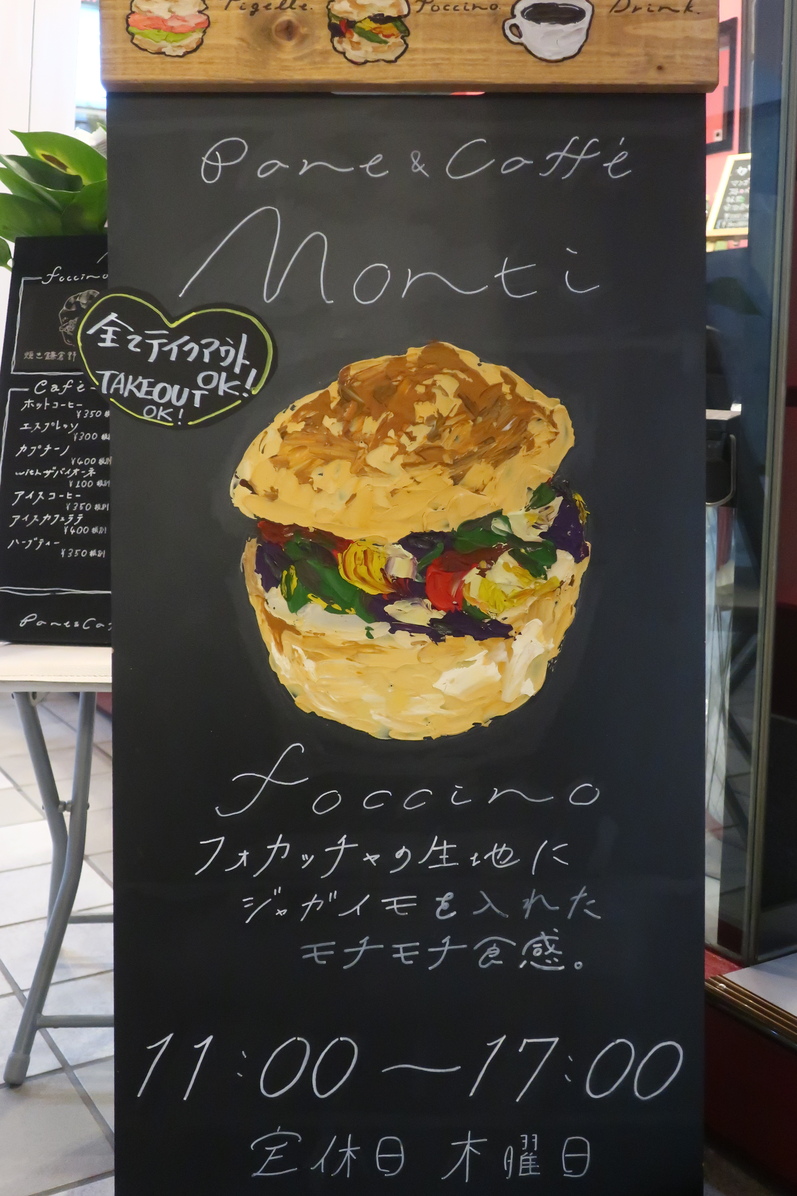 Tigelle.
Foccino.
Drink.
Pane & Caffé
Monti
全てテイクアウト
OK!
TAKEOUT
OK!
foccino
フォカッチャの生地に
ジャガイモを入れた
モチモチ食感。
11:00～17:00
定休日 木曜日
foccino
Café
ホットコーヒー
¥350
エスプレッソ
¥300
カプチーノ
¥400
withザバイオーネ
¥100
アイスコーヒー
¥350 税別
アイスカフェラテ
¥400 税別
ハーブティー
¥350 税別
Pane&Ca